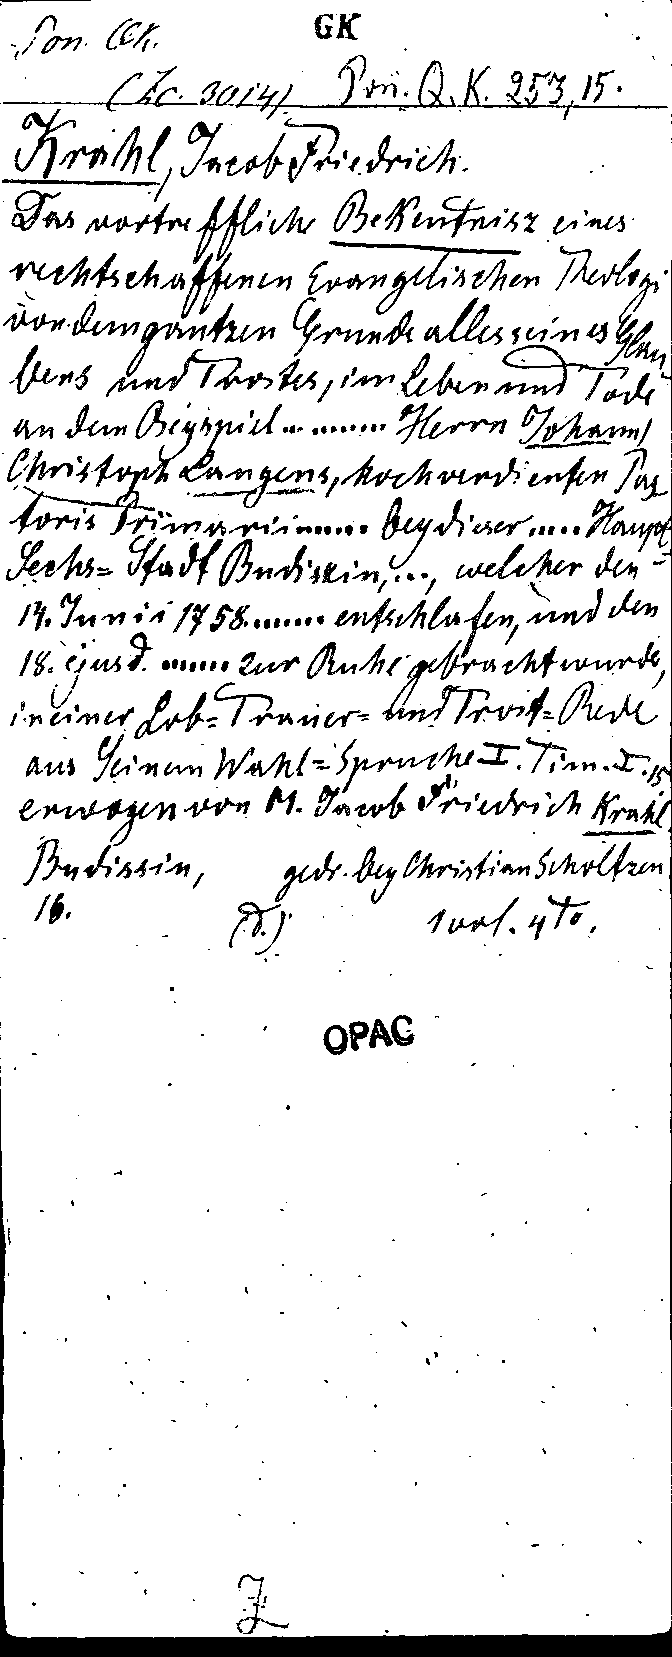 GK
Pon. QK.
(Zc. 3014) Pon. Q. K. 253, 15.
Krahl, Jacob Friedrich.
Das vortreffliche Bekentnisz eines
rechtschaffenen Evangelischen Theologi
von dem gantzen Grunde alles seines Glau-
bens und Trostes, im Leben und Tode
an dem Beyspiel ........ Herrn Johann
Christoph Langens, hochverdienten Pas
toris Primarii ...... bey dieser .... Haupt
Sechs= Stadt Budissin, ..., welcher den
14. Junii 1758 ...... entschlafen, und den
18. ejusd. ...... zur Ruhe gebracht wurde,
in einer Lob= Trauer= und Trost= Rede
aus Seinem Wahl= Spruche I. Tim. I. 15
erwogen von M. Jacob Friedrich Krahl
Budissin, gedr. bey Christian Scholtzen
16. (d.) 1 vol. 4to.
OPAC